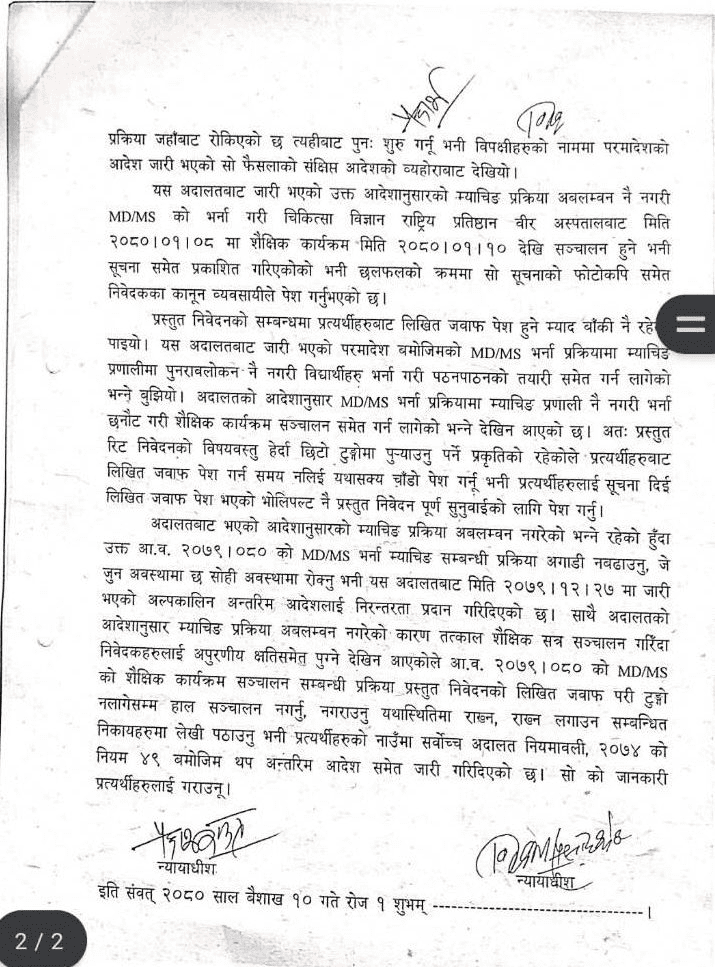 प्रक्रिया जहाँबाट रोकिएको छ त्यहीबाट पुनः शुरु गर्नू भनी विपक्षीहरुको नाममा परमादेशको
आदेश जारी भएको सो फैसलाको संक्षिप्त आदेशको व्यहोराबाट देखियो।
यस अदालतबाट जारी भएको उक्त आदेशानुसारको म्याचिङ प्रक्रिया अबलम्वन नै नगरी
MD/MS को भर्ना गरी चिकित्सा विज्ञान राष्ट्रिय प्रतिष्ठान वीर अस्पतालबाट मिति
२०८०।०१।०८ मा शैक्षिक कार्यक्रम मिति २०८०।०१।१० देखि सञ्चालन हुने भनी
सूचना समेत प्रकाशित गरिएकोको भनी छलफलको क्रममा सो सूचनाको फोटोकपि समेत
निवेदकका कानून व्यवसायीले पेश गर्नुभएको छ।
प्रस्तुत निवेदनको सम्बन्धमा प्रत्यर्थीहरुबाट लिखित जवाफ पेश हुने म्याद बाँकी नै रहे
पाइयो। यस अदालतबाट जारी भएको परमादेश बमोजिमको MD/MS भर्ना प्रक्रियामा म्याचिङ
प्रणालीमा पुनरावलोकन नै नगरी विद्यार्थीहरु भर्ना गरी पठनपाठनको तयारी समेत गर्न लागेको
भन्ने बुझियो। अदालतको आदेशानुसार MD/MS भर्ना प्रक्रियामा म्याचिङ प्रणाली नै नगरी भर्ना
छनौट गरी शैक्षिक कार्यक्रम सञ्चालन समेत गर्न लागेको भन्ने देखिन आएको छ। अतः प्रस्तुत
रिट निवेदनको विषयवस्तु हेर्दा छिटो टुङ्गोमा पुऱ्याउनु पर्ने प्रकृतिको रहेकोले प्रत्यर्थीहरुबाट
लिखित जवाफ पेश गर्न समय नलिई यथासक्य चाँडो पेश गर्नू भनी प्रत्यर्थीहरुलाई सूचना दिई
लिखित जवाफ पेश भएको भोलिपल्ट नै प्रस्तुत निवेदन पूर्ण सुनुवाईको लागि पेश गर्नु।
अदालतबाट भएको आदेशानुसारको म्याचिङ प्रक्रिया अबलम्वन नगरेको भन्ने रहेको हुँदा
उक्त आ.व. २०७९।०८० को MD/MS भर्ना म्याचिङ सम्बन्धी प्रक्रिया अगाडी नबढाउनु, जे
जुन अवस्थामा छ सोही अवस्थामा रोक्नु भनी यस अदालतबाट मिति २०७९।१२।२७ मा जारी
भएको अल्पकालिन अन्तरिम आदेशलाई निरन्तरता प्रदान गरिदिएको छ। साथै अदालतको
आदेशानुसार म्याचिङ प्रक्रिया अबलम्वन नगरेको कारण तत्काल शैक्षिक सत्र सञ्चालन गरिँदा
निवेदकहरुलाई अपुरणीय क्षतिसमेत पुग्ने देखिन आएकोले आ.व. २०७९।०८० को MD/MS
को शैक्षिक कार्यक्रम सञ्चालन सम्बन्धी प्रक्रिया प्रस्तुत निवेदनको लिखित जवाफ परी टुङ्गो
नलागेसम्म हाल सञ्चालन नगर्नु, नगराउनु यथास्थितिमा राख्न, राख्न लगाउन सम्बन्धित
निकायहरुमा लेखी पठाउनु भनी प्रत्यर्थीहरुको नाउँमा सर्वोच्च अदालत नियमावली, २०७४ को
नियम ४९ बमोजिम थप अन्तरिम आदेश समेत जारी गरिदिएको छ। सो को जानकारी
प्रत्यर्थीहरुलाई गराउनू।
न्यायाधीश
न्यायाधीश
इति संवत् २०८० साल बैशाख १० गते रोज १ शुभम् ------------------------------।
2 / 2